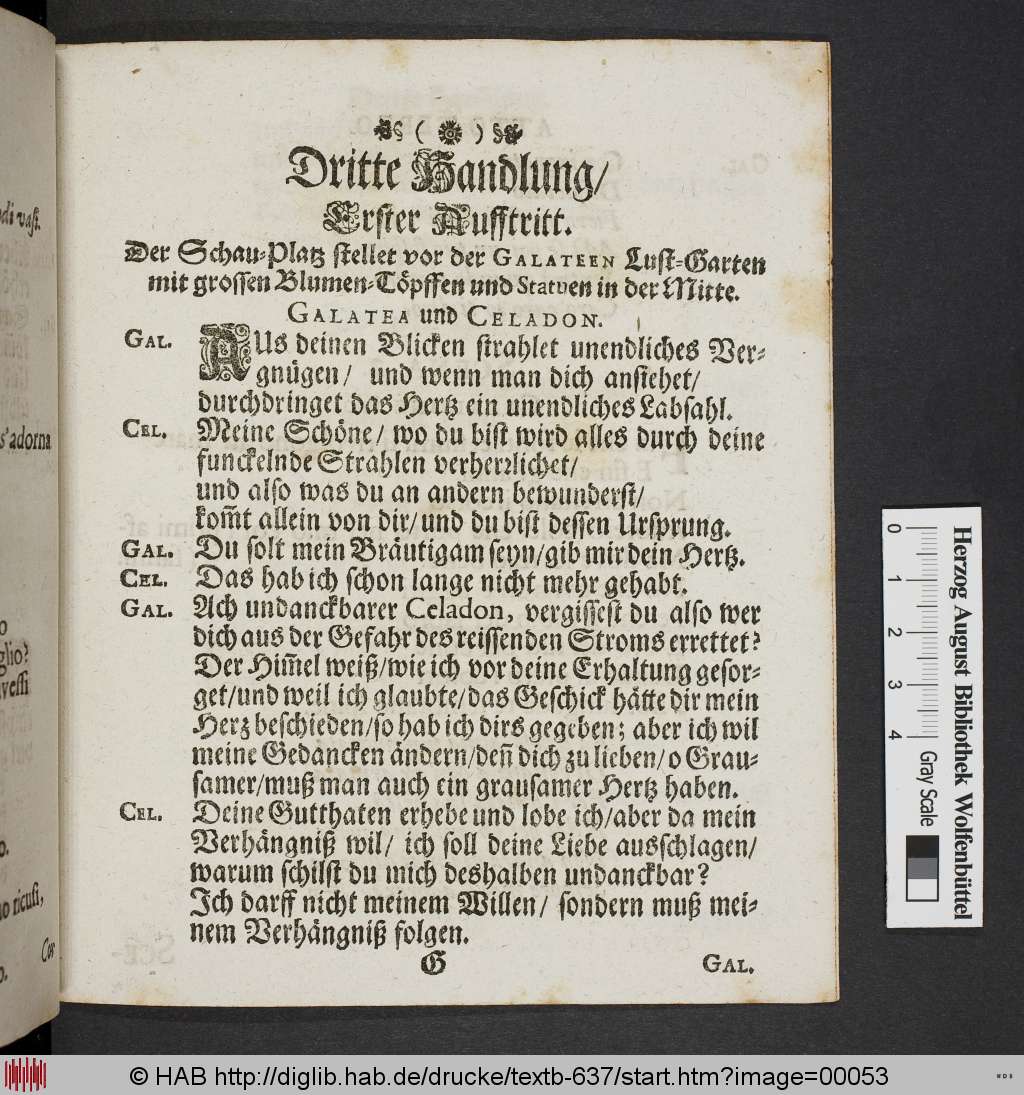 Dritte Handlung/
Erster Aufftritt.
Der Schau-Platz stellet vor der GALATEEN Lust-Garten
mit grossen Blumen-Töpffen und Statuen in der Mitte.
GALATEA und CELADON.
GAL. AUs deinen Blicken strahlet unendliches Ver-
gnügen/ und wenn man dich ansiehet/
durchdringet das Hertz ein unendliches Labsahl.
CEL. Meine Schöne/ wo du bist wird alles durch deine
funckelnde Strahlen verherrlichet/
und also was du an andern bewunderst/
kom̃t allein von dir/ und du bist dessen Ursprung.
GAL. Du solt mein Bräutigam seyn/ gib mir dein Hertz.
CEL. Das hab ich schon lange nicht mehr gehabt.
GAL. Ach undanckbarer Celadon, vergissest du also wer
dich aus der Gefahr des reissenden Stroms errettet?
Der Him̃el weiß/ wie ich vor deine Erhaltung gesor-
get/ und weil ich glaubte/ das Geschick hätte dir mein
Herz beschieden/ so hab ich dirs gegeben; aber ich wil
meine Gedancken ändern/ deñ dich zu lieben/ o Grau-
samer/ muß man auch ein grausamer Hertz haben.
CEL. Deine Gutthaten erhebe und lobe ich/ aber da mein
Verhängniß wil/ ich soll deine Liebe ausschlagen/
warum schilst du mich deshalben undanckbar?
Ich darff nicht meinem Willen/ sondern muß mei-
nem Verhängniß folgen.
G GAL.
s'adorna
glio?
o ricusi,
Cor
Herzog August Bibliothek Wolfenbüttel
0 1 2 3 4 Gray Scale
© HAB http://diglib.hab.de/drucke/textb-637/start.htm?image=00053